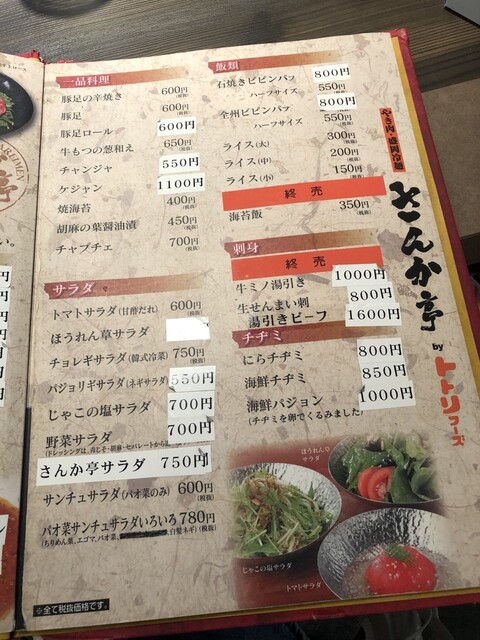 一品料理
豚足の辛焼き 600円(税抜)
豚足 600円(税抜)
豚足ロール 600円
牛もつの葱和え 650円(税抜)
チャンジャ 550円
ケジャン 1100円
焼海苔 400円(税抜)
胡麻の葉醤油漬 450円(税抜)
チャプチェ 700円(税抜)
サラダ
トマトサラダ(甘酢だれ) 600円(税抜)
ほうれん草サラダ
チョレギサラダ(韓式冷菜) 750円(税抜)
パジョリギサラダ(ネギサラダ) 550円
じゃこの塩サラダ 700円
野菜サラダ 700円
(ドレッシングは、青じそ・胡麻・セパレートから
さんか亭サラダ 750円
サンチュサラダ(パオ菜のみ) 600円(税抜)
パオ菜サンチュサラダいろいろ 780円(税抜)
(ちりめん菜、エゴマ、パオ菜、白髪ネギ)
※全て税抜価格です。
飯類
石焼きビビンバフ 800円
ハーフサイズ 550円(税抜)
全州ビビンバフ 800円
ハーフサイズ 550円(税抜)
ライス(大) 300円(税抜)
ライス(中) 200円(税抜)
ライス(小) 150円(税抜)
終売
海苔飯 350円(税抜)
刺身
終売
牛ミノ湯引き 1000円
生せんまい刺 800円
湯引きビーフ 1600円
チヂミ
にらチヂミ 800円
海鮮チヂミ 850円
海鮮パジョン 1000円
(チヂミを卵でくるみました)
ほうれん草
サラダ
じゃこの塩サラダ
トマトサラダ
やき肉・盛岡冷麺
さんか亭
by
トトリフーズ